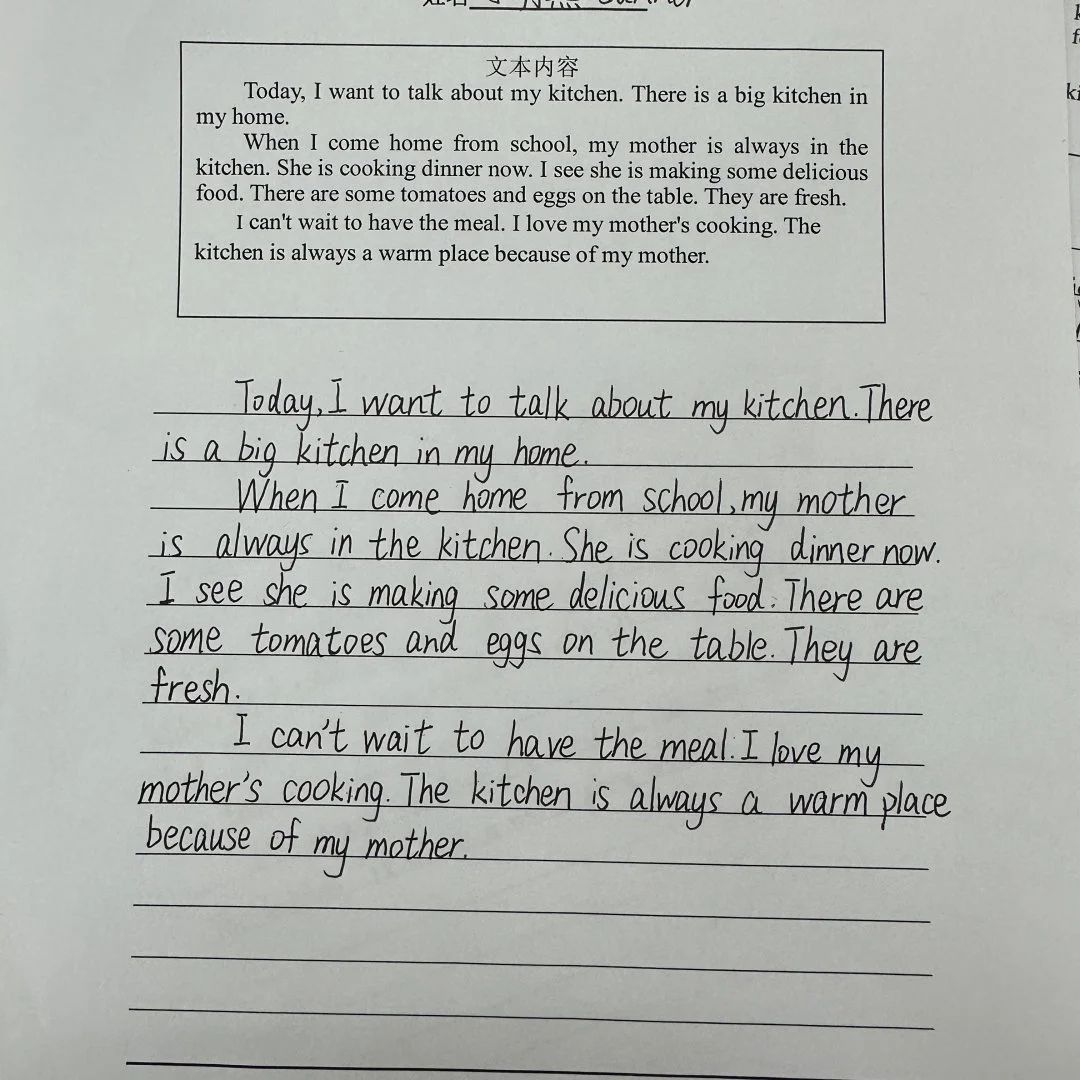 文本内容
Today, I want to talk about my kitchen. There is a big kitchen in
my home.
When I come home from school, my mother is always in the
kitchen. She is cooking dinner now. I see she is making some delicious
food. There are some tomatoes and eggs on the table. They are fresh.
I can't wait to have the meal. I love my mother's cooking. The
kitchen is always a warm place because of my mother.
Today, I want to talk about my kitchen. There
is a big kitchen in my home.
When I come home from school, my mother
is always in the kitchen. She is cooking dinner now.
I see she is making some delicious food. There are
some tomatoes and eggs on the table. They are
fresh.
I can't wait to have the meal. I love my
mother's cooking. The kitchen is always a warm place
because of my mother.